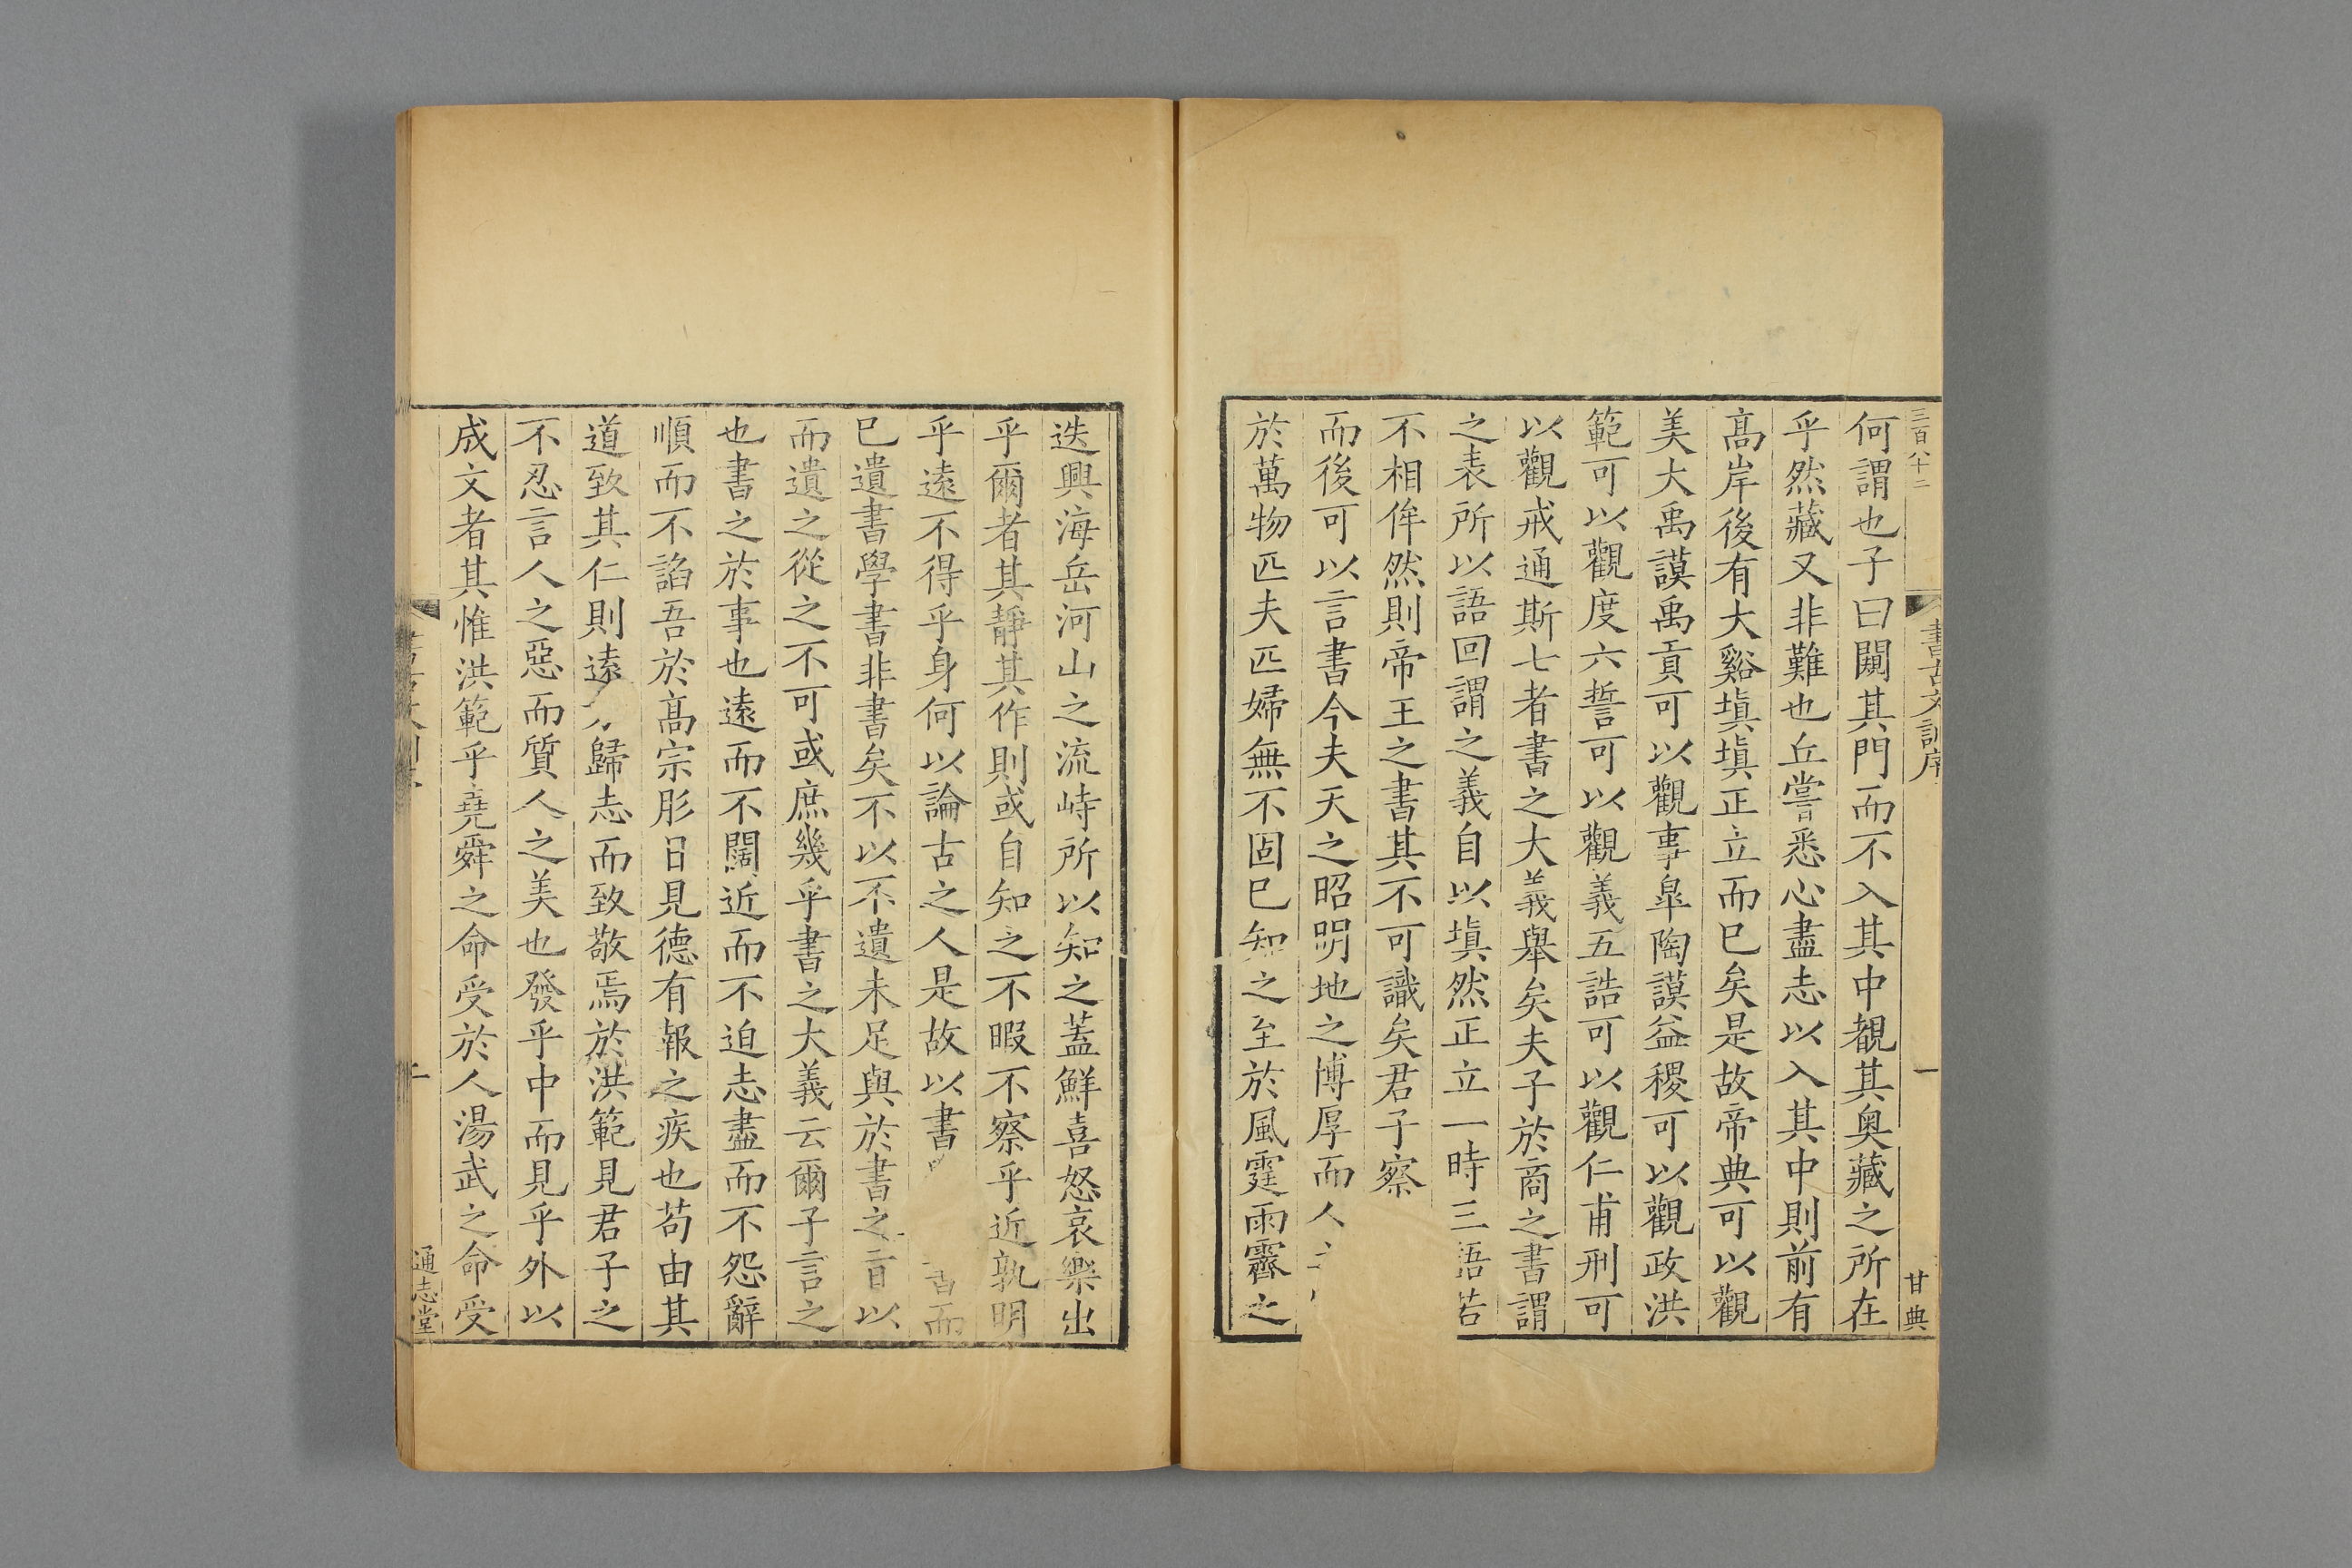 三百八十二
書古文訓序
一
甘典
何謂也子曰闚其門而不入其中覩其奥藏之所在
乎然藏又非難也丘嘗悉心盡志以入其中則前有
髙岸後有大谿塡塡正立而已矣是故帝典可以觀
美大禹謨禹貢可以觀事臯陶謨益稷可以觀政洪
範可以觀度六誓可以觀義五誥可以觀仁甫刑可
以觀戒通斯七者書之大義舉矣夫子於商之書謂
之表所以語回謂之義自以塡然正立一時三語若
不相侔然則帝王之書其不可識矣君子察
而後可以言書今夫天之昭明地之博厚而人
於萬物匹夫匹婦無不固已知之至於風霆雨霽之
迭興海岳河山之流峙所以知之蓋鮮喜怒哀樂出
乎爾者其靜其作則或自知之不暇不察乎近孰明
乎遠不得乎身何以論古之人是故以書書而
已遺書學書非書矣不以不遺未足與於書之旨以
而遺之從之不可或庶幾乎書之大義云爾子言之
也書之於事也遠而不闊近而不迫志盡而不怨辭
順而不諂吾於髙宗肜日見德有報之疾也苟由其
道致其仁則遠方歸志而致敬焉於洪範見君子之
不忍言人之惡而質人之美也發乎中而見乎外以
成文者其惟洪範乎堯舜之命受於人湯武之命受
通志堂